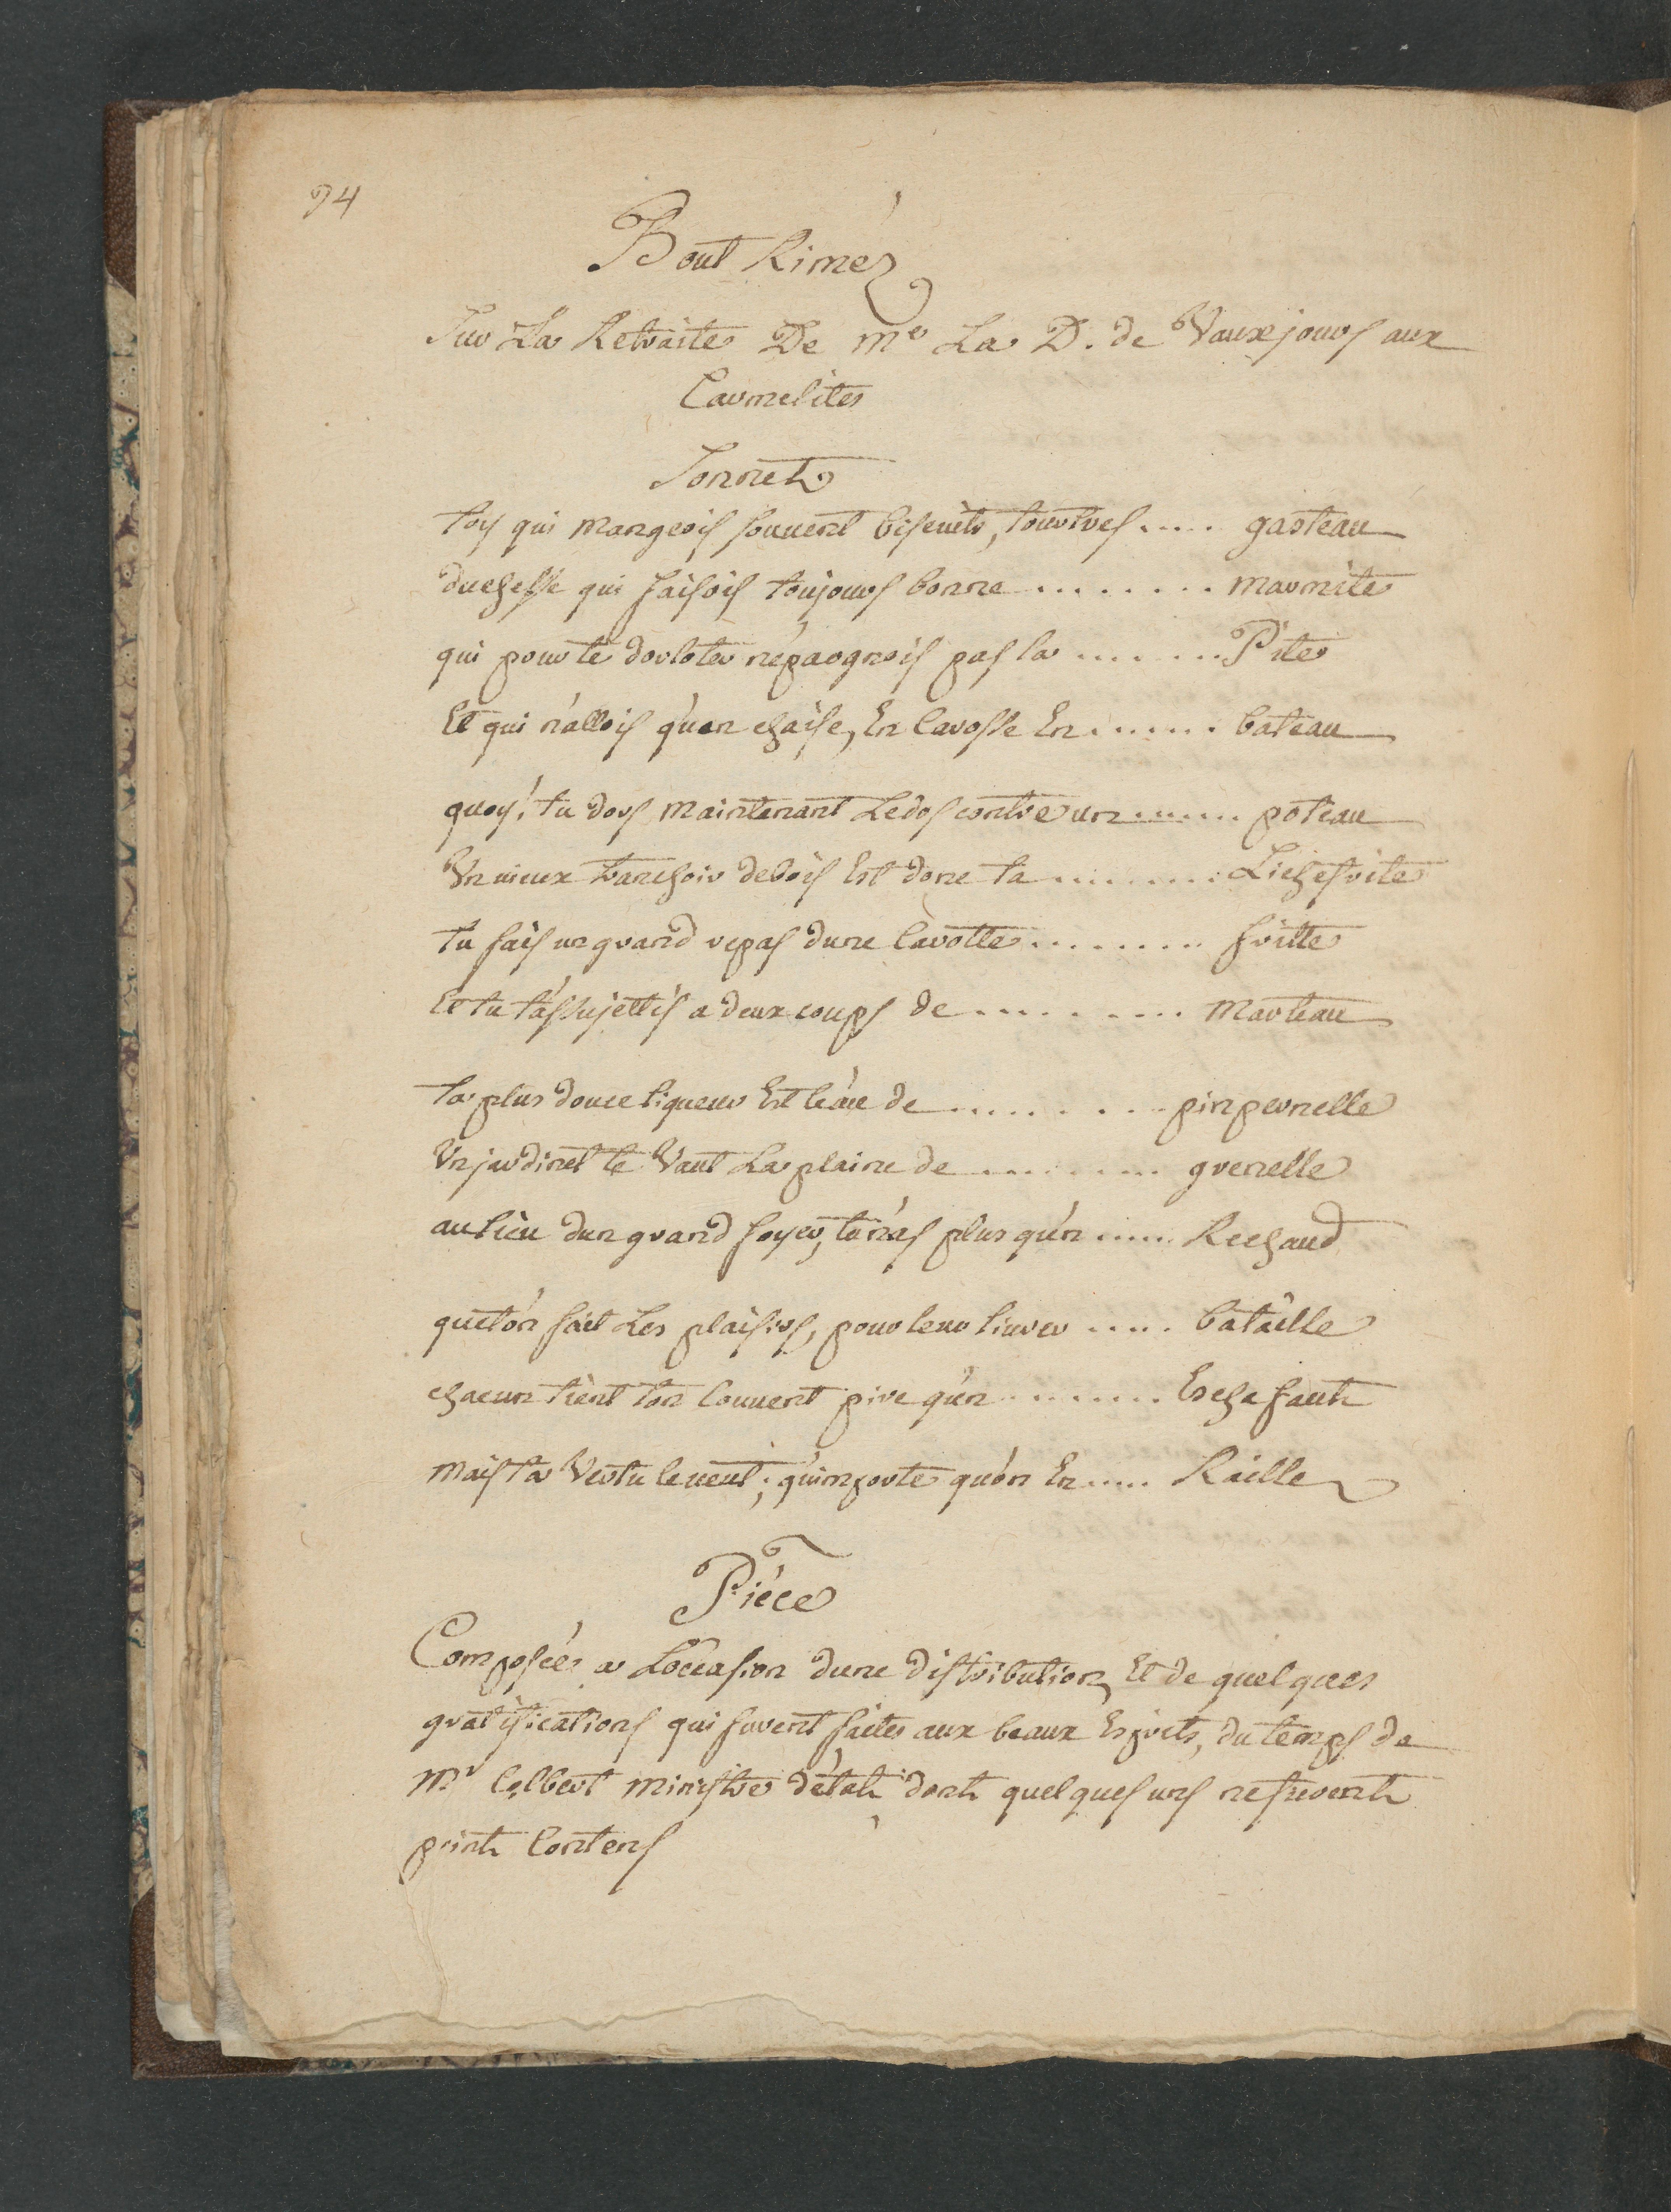 94
Bout Rimez
Sur La Retraite De Me La D. de Vauxjours aux
Carmelites
Sonnet
toy qui mangeois souuent biscuits, tourtres..... gasteau
duchesse qui faisois toujours bonne ........ marmite
qui pour te dorloter n'epargnois pas la ....... Pite
Et qui n'allois qu'en chaise, En Carosse En...... bateau
quoy! tu dors maintenant Le dos contre un...... poteau
Vn uieux tranchoir debois Est donc ta ....... Lichefrite
tu fais un grand repas dune Carotte......... fritte
Et tu t'assujettis a deux coups de ......... Marteau
ta plus douce liqueur Est l'eau de ......... pinpernelle
Vn jardinet te Vaut La plaine de ........ grenelle
au lieu dun grand foyer, tu n'as plus qu'un ..... Rechaud
quet'on fait Les plaisirs, pour leur liurer ..... bataille
chacun tient ton Couuent pire qu'un ........ Echafaut
mais ta Vertu leueut; qu'inporte qu'on En..... Raille
Piéce
Composée a L'occasion dune distribution, Et de quelques
gratifications qui furent faites aux beaux Esprits, du temps de
Mr Colbert ministre d'état dont quelques uns nefurent
point Contens